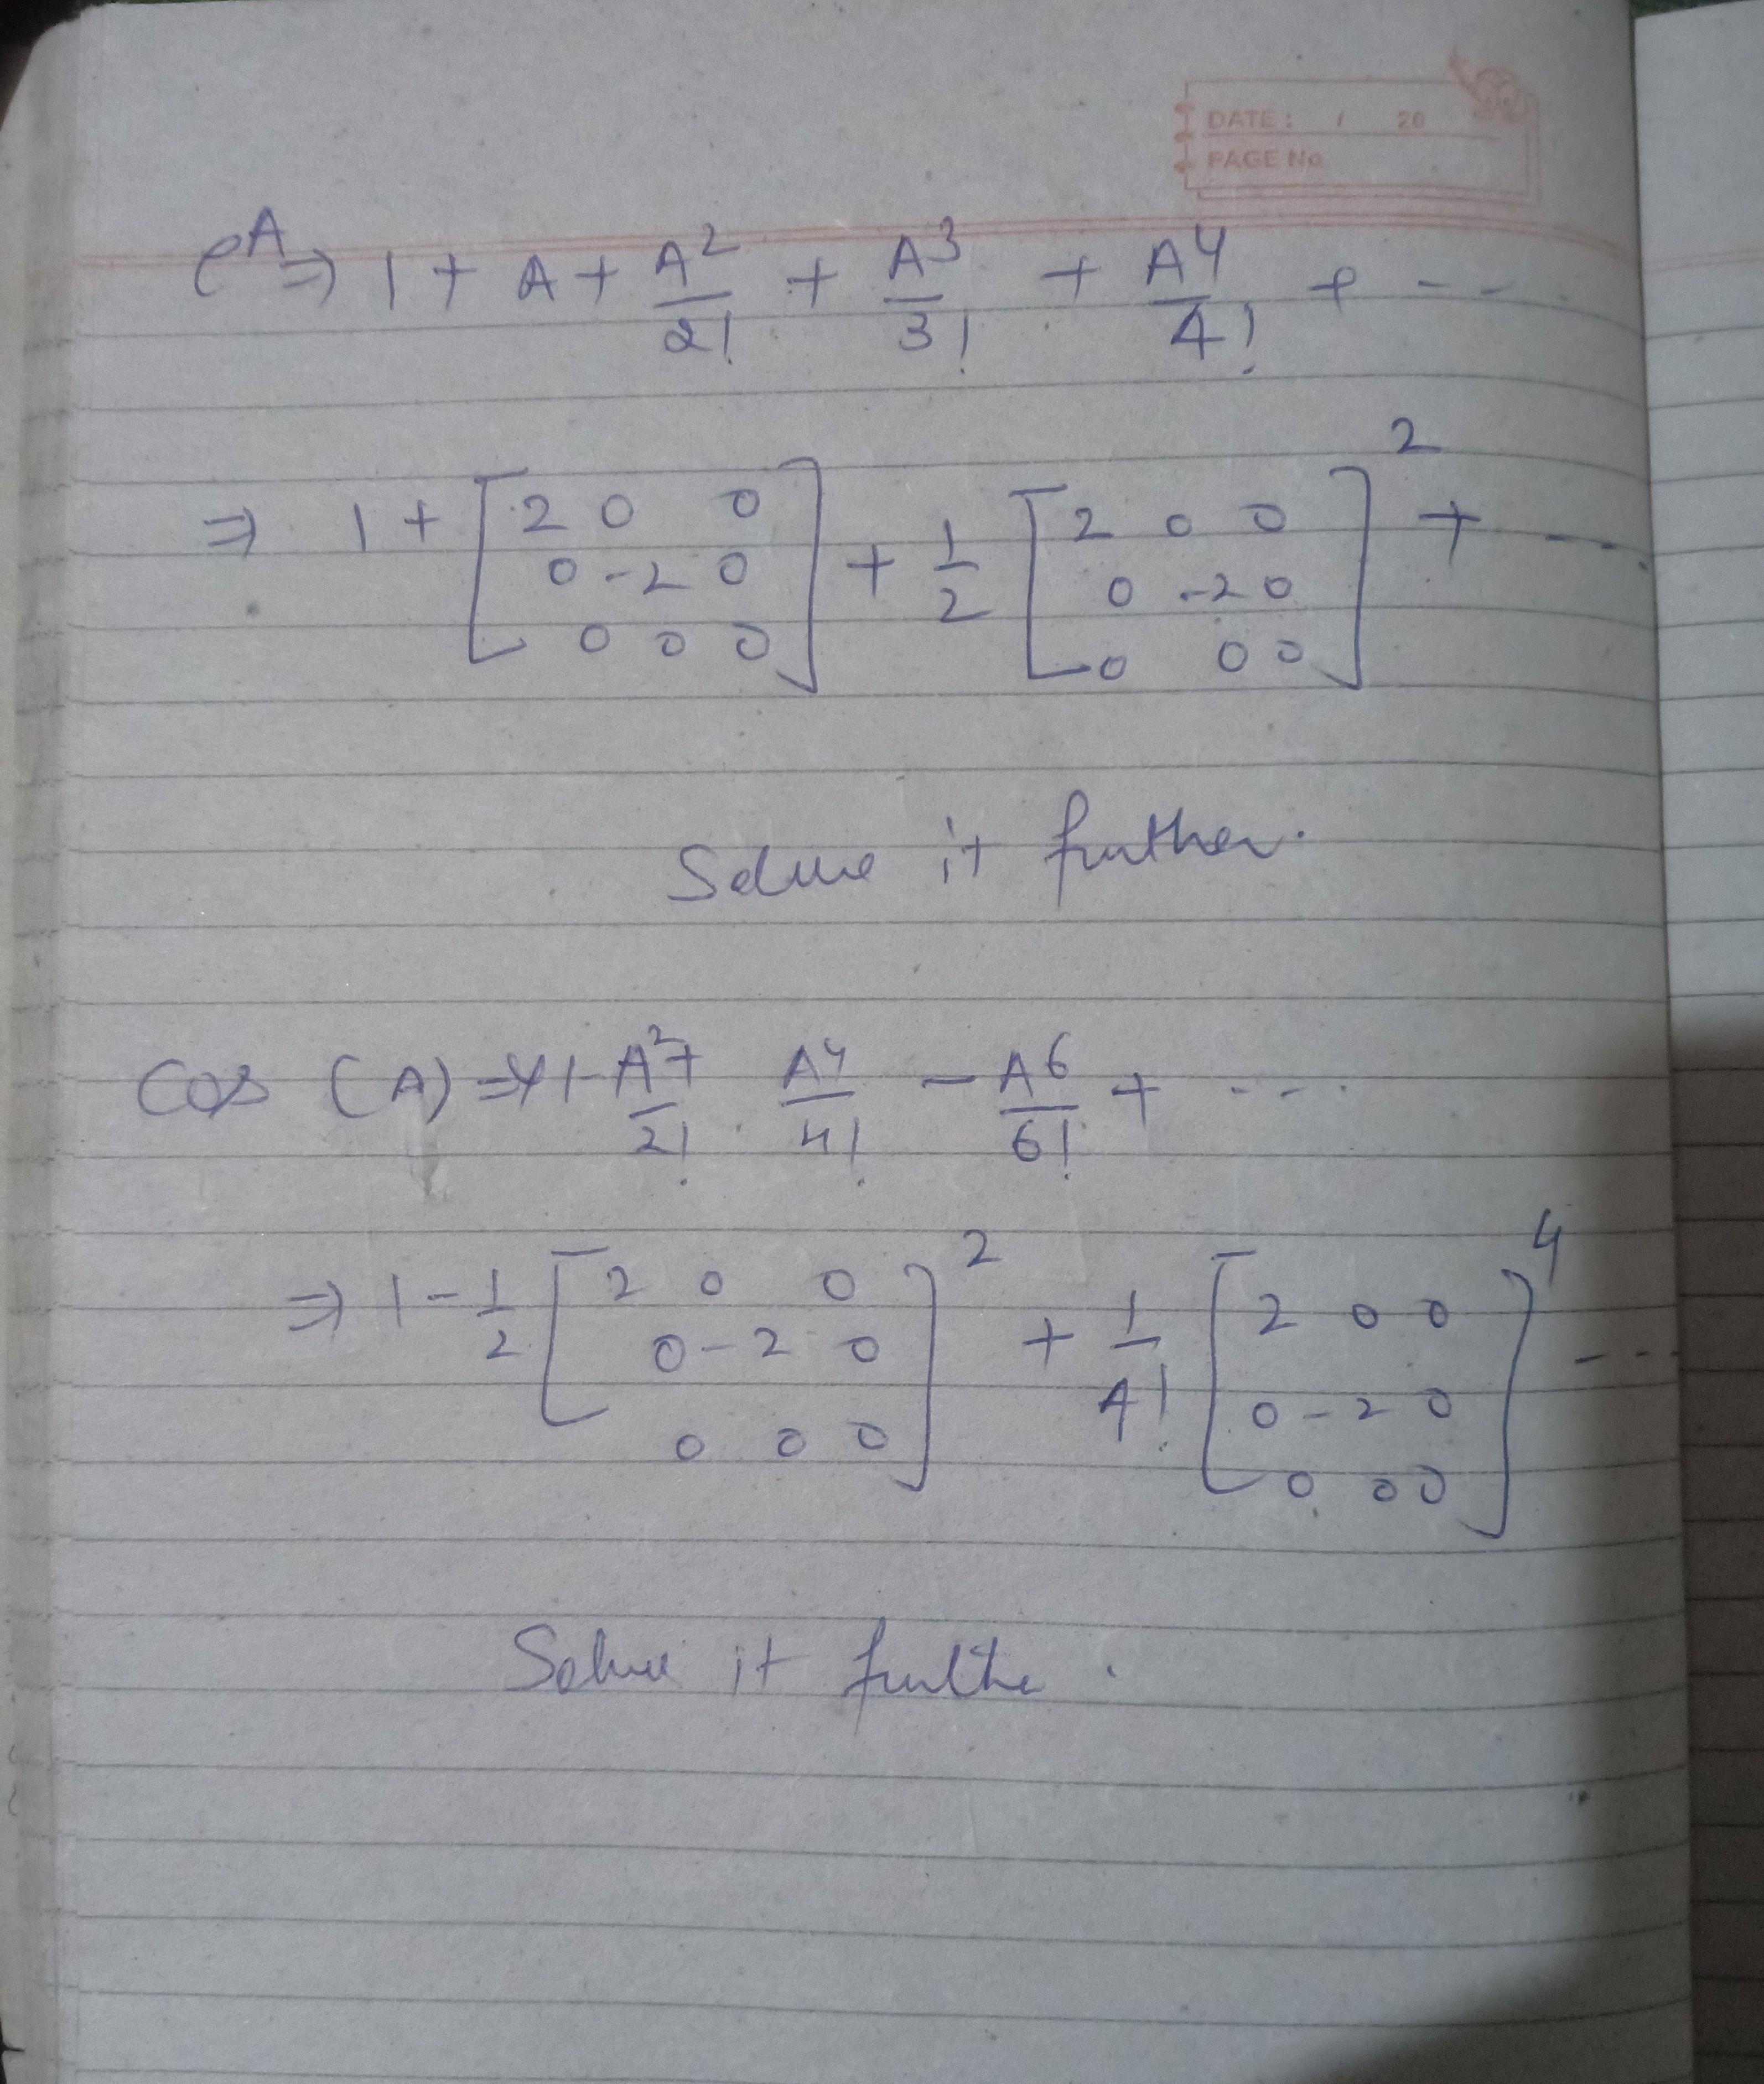 DATE: / 20
PAGE No.
e^A ⇒ 1 + A + A^2/2! + A^3/3! + A^4/4! + ---
⇒ 1 + [2 0 0; 0 -2 0; 0 0 0] + 1/2 [2 0 0; 0 -2 0; 0 0 0]^2 + ---
Solve it further.
Cos (A) ⇒ 1 - A^2/2! + A^4/4! - A^6/6! + ----
⇒ 1 - 1/2 [2 0 0; 0 -2 0; 0 0 0]^2 + 1/4! [2 0 0; 0 -2 0; 0 0 0]^4 ---
Solve it furthe.